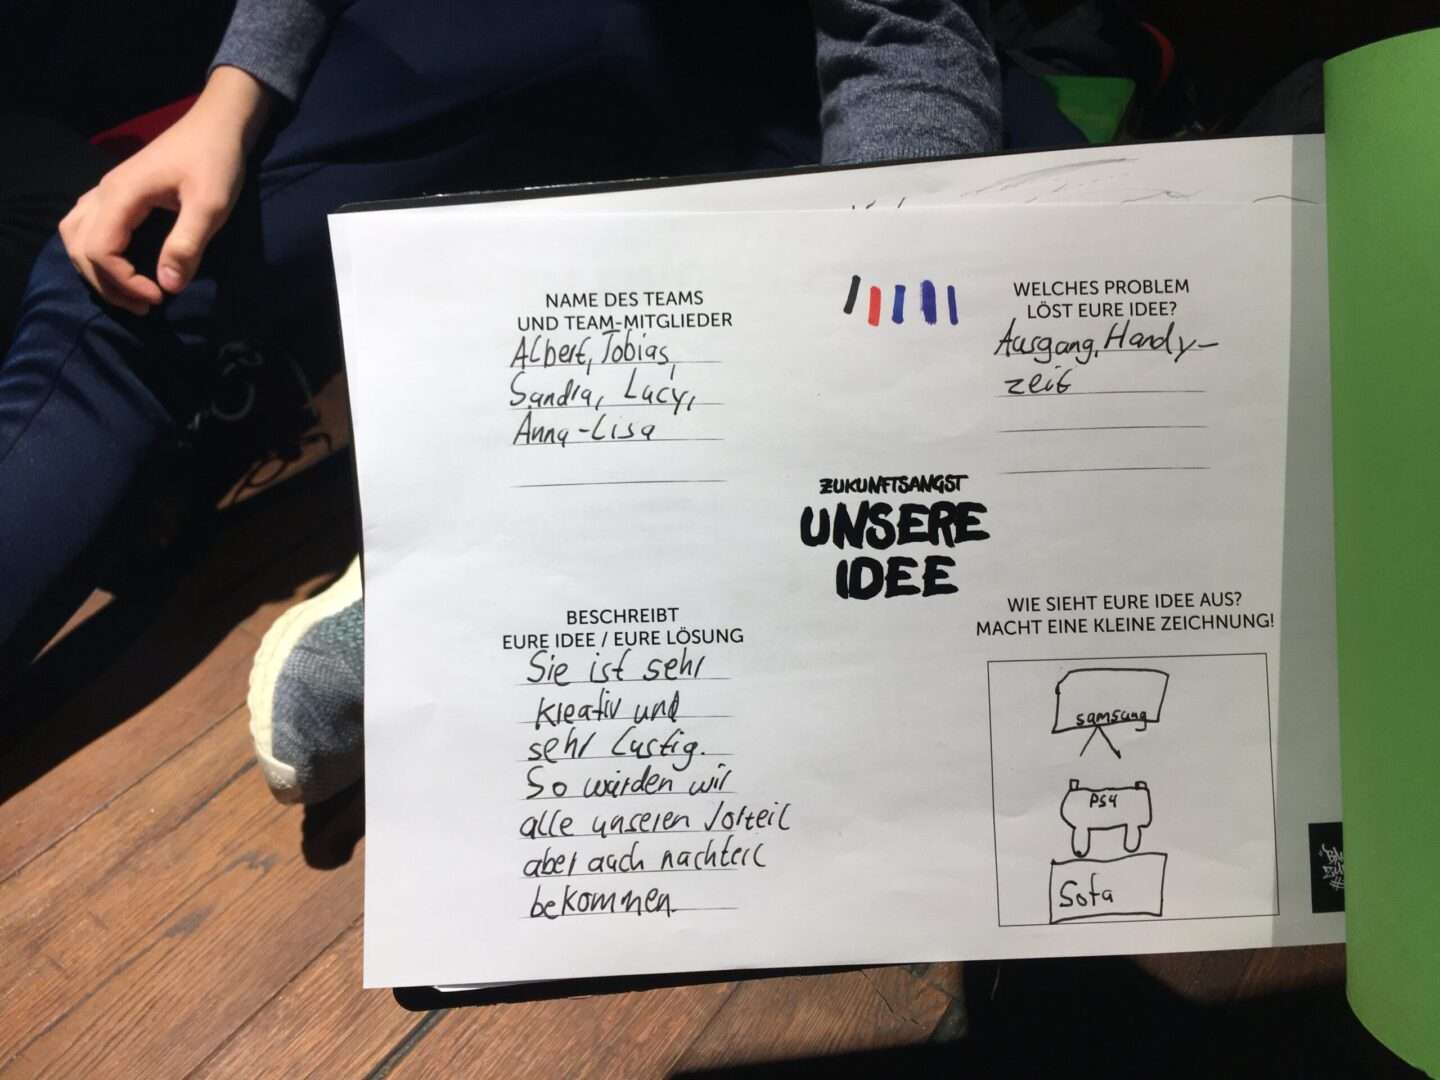 NAME DES TEAMS
UND TEAM-MITGLIEDER
Albert, Tobias,
Sandra, Lucy,
Anna-Lisa
WELCHES PROBLEM
LÖST EURE IDEE?
Ausgang, Handy-
zeit
ZUKUNFTSANGST
UNSERE
IDEE
BESCHREIBT
EURE IDEE / EURE LÖSUNG
Sie ist sehr
kreativ und
sehr lustig.
So würden wir
alle unseren Vorteil
aber auch nachteil
bekommen.
WIE SIEHT EURE IDEE AUS?
MACHT EINE KLEINE ZEICHNUNG!
samsung
PS4
Sofa